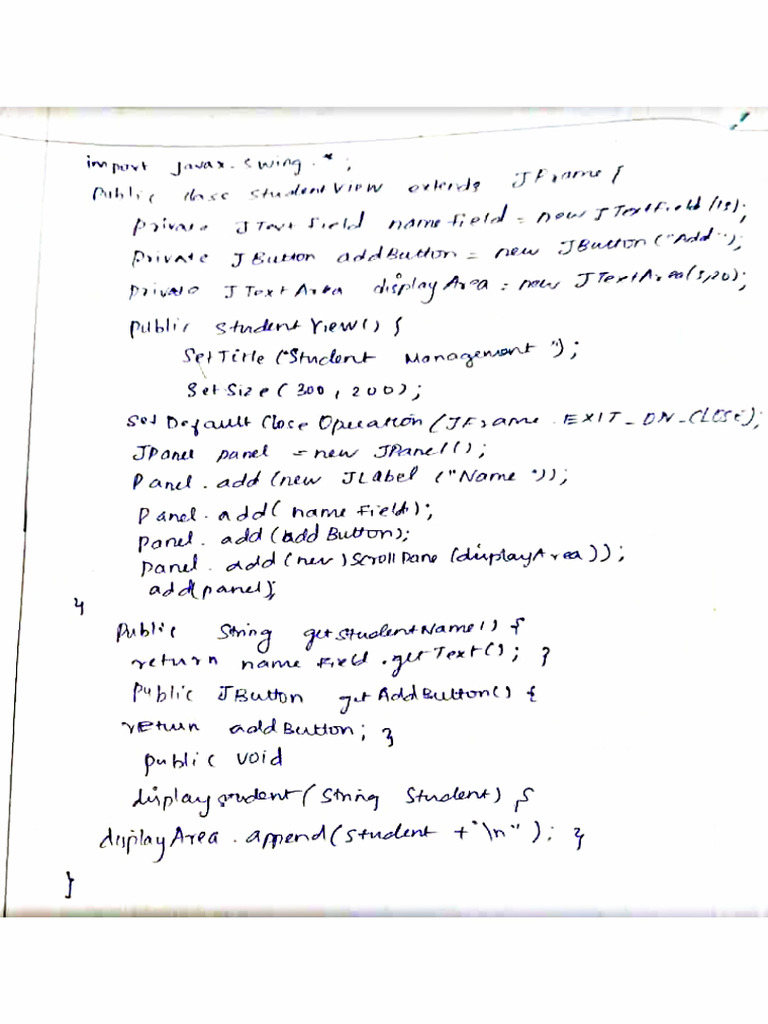 import javax.swing.*;
Public class StudentView extends JFrame {
private JTextField namefield = new JTextField(15);
private JButton addButton = new JButton("Add");
private JTextArea displayArea = new JTextArea(5,20);
public StudentView() {
SetTitle ("Student Management");
SetSize (300, 200);
Set Default Close Operation (JFrame.EXIT_ON_CLOSE);
JPanel panel = new JPanel();
Panel.add (new JLabel ("Name "));
Panel.add( name Field);
panel. add (add Button);
panel. add (new JScrollPane (displayArea));
add(panel);
}
Public String getStudentName() {
return name Field.getText(); }
Public JButton getAddButton() {
return addButton; }
public void
displaystudent (String Student) {
displayArea.append(student + "\n"); }
}